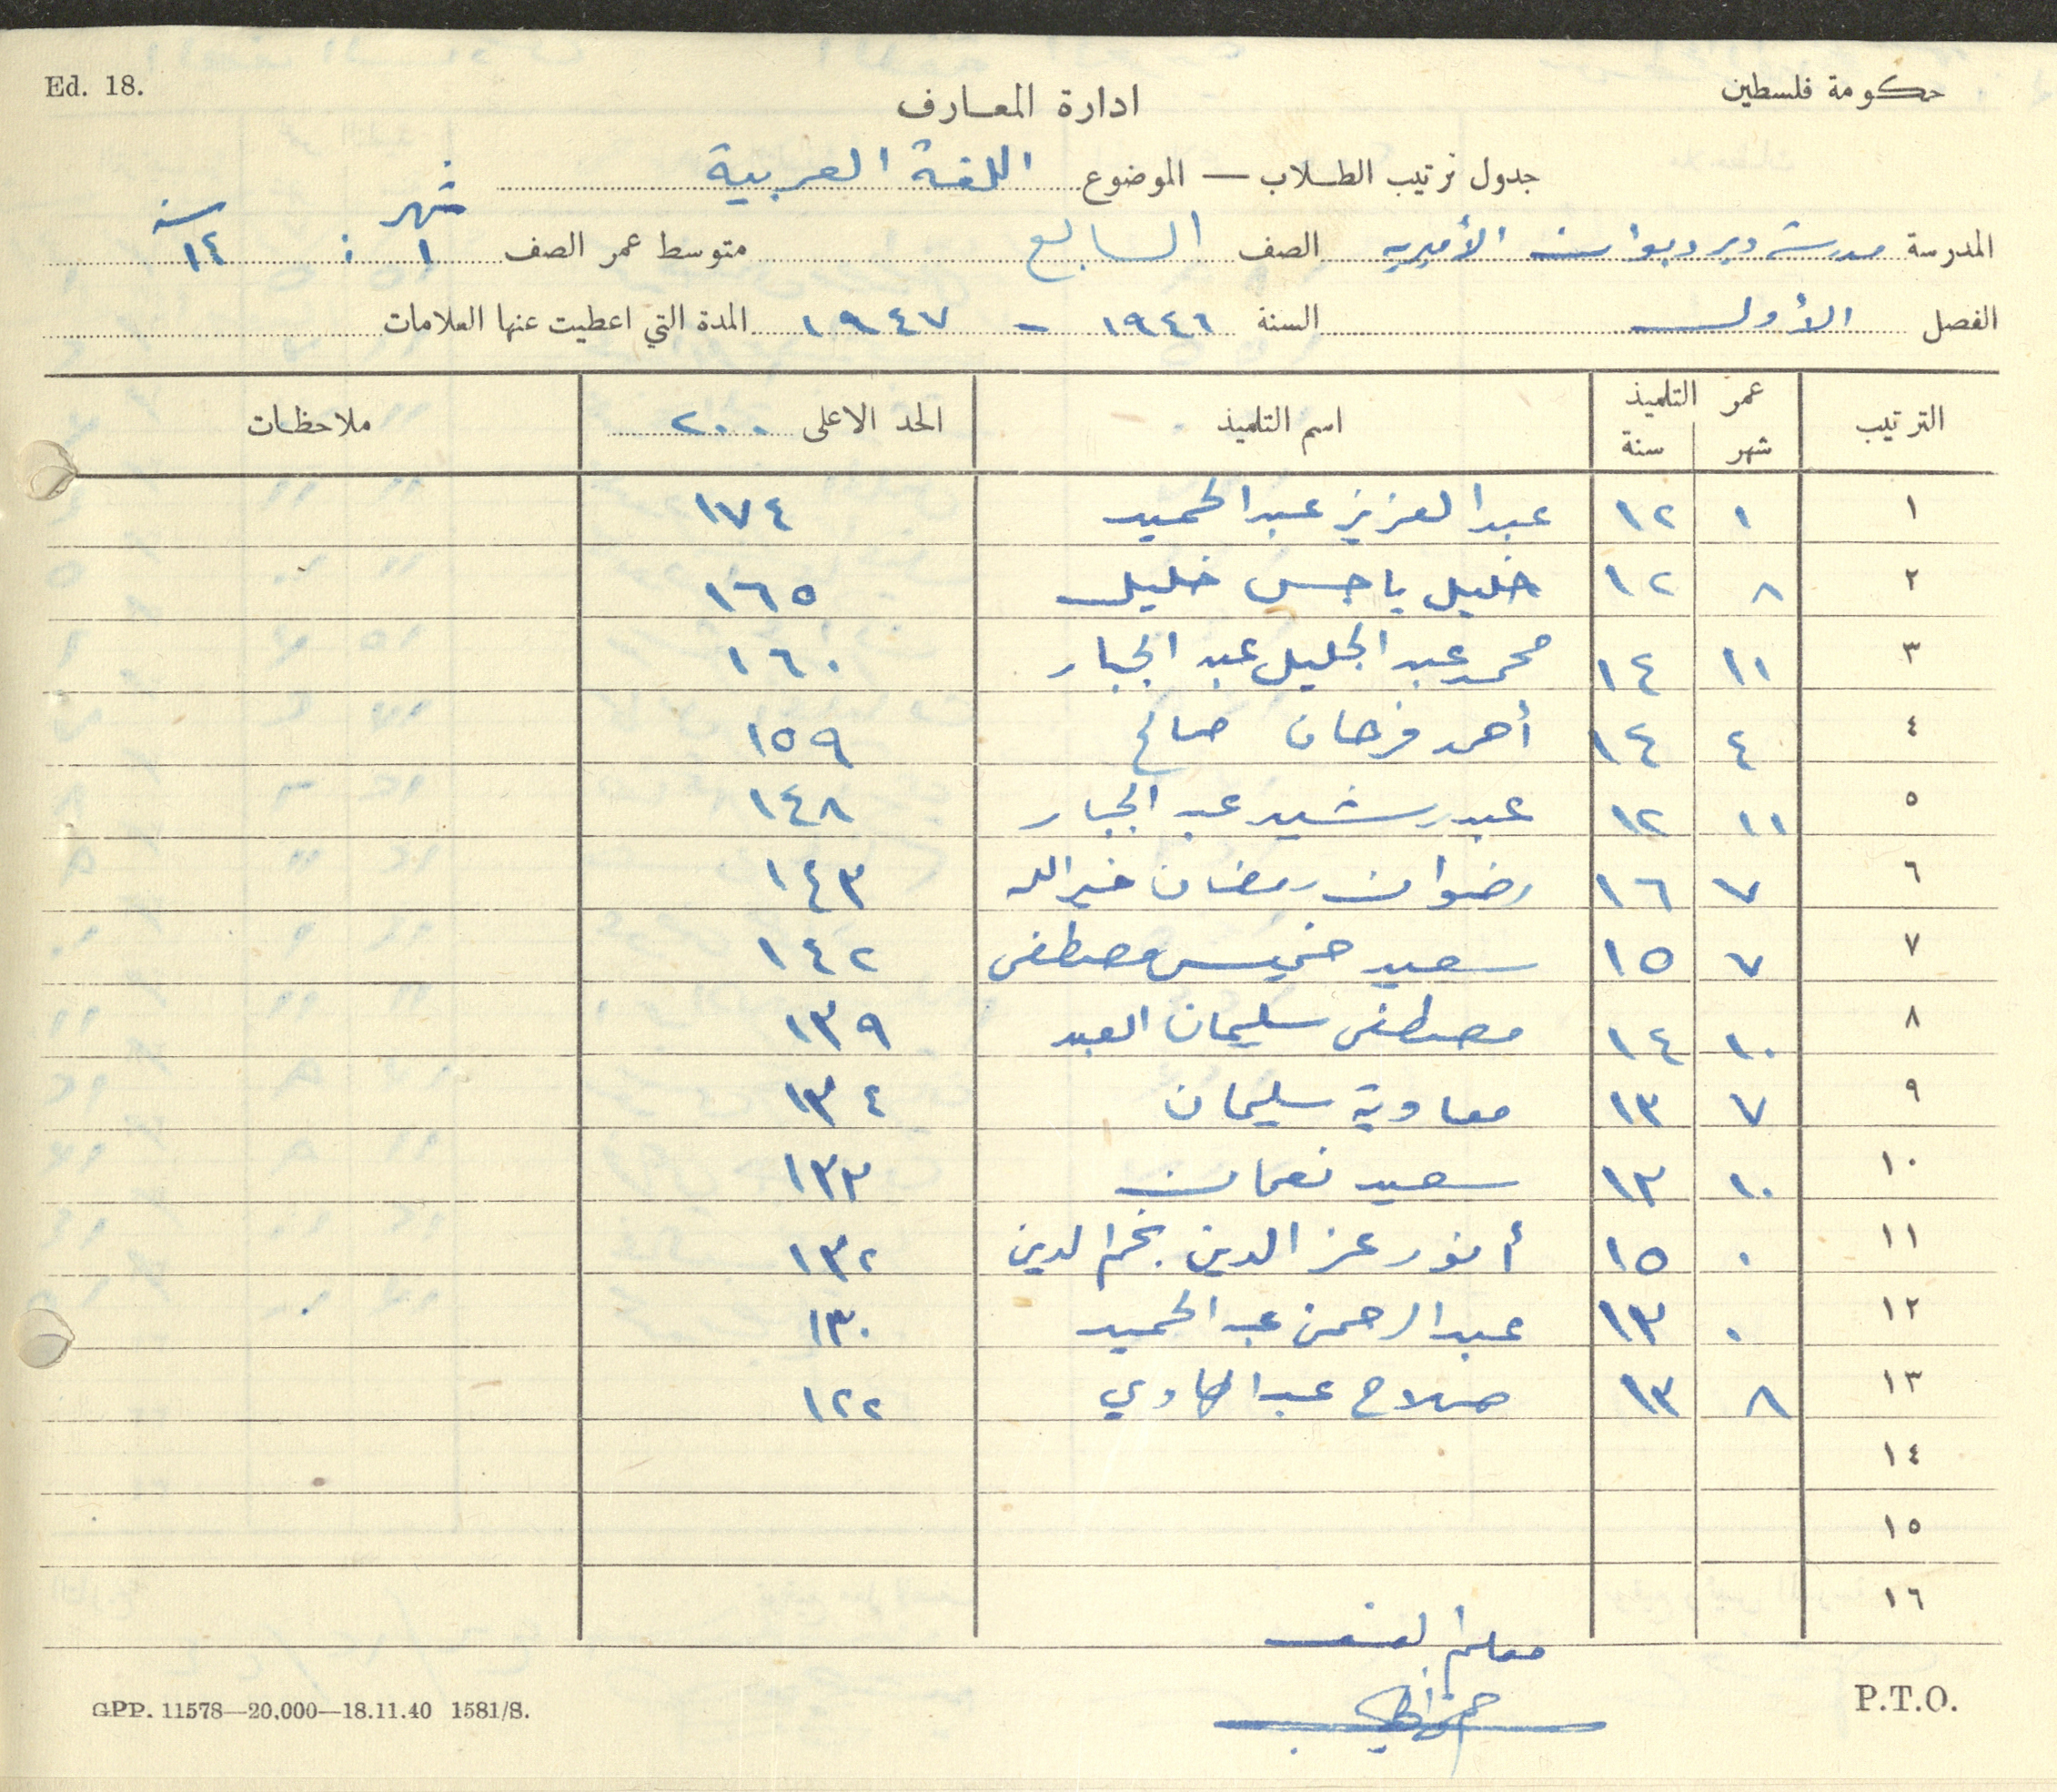 Ed. 18.
حكومة فلسطين
ادارة المعارف
جدول ترتيب الطلاب — الموضوع اللغة العربية
المدرسة مدرسة دير دبوان الأميرية الصف السابع متوسط عمر الصف ١ شهر : ١٤ سنة
الفصل الأول السنة ١٩٤٦ - ١٩٤٧ المدة التي اعطيت عنها العلامات
الترتيب عمر التلميذ شهر سنة اسم التلميذ الحد الاعلى ٢٠٠ ملاحظات
١ ١ ١٢ عبد العزيز عبد الحميد ١٧٤
٢ ٨ ١٢ خليل ياجس خليل ١٦٥
٣ ١١ ١٤ محمد عبد الجليل عبد الجبار ١٦٠
٤ ٤ ١٤ أحمد فرحان صالح ١٥٩
٥ ١١ ١٢ عبد رشيد عبد الجبار ١٤٨
٦ ٧ ١٦ رضوان رمضان خير الله ١٤٣
٧ ٧ ١٥ سعيد خميس مصطفى ١٤٢
٨ ١٠ ١٤ مصطفى سليمان العبد ١٣٩
٩ ٧ ١٣ معاوية سليمان ١٣٤
١٠ ١٠ ١٣ سعيد نعمان ١٣٣
١١ ٠ ١٥ أنور عز الدين نجم الدين ١٣٢
١٢ ٠ ١٣ عبد الرحمن عبد الحميد ١٣٠
١٣ ٨ ١٣ صلاح عبد الهادي ١٢٢
١٤
١٥
١٦
معلم الصف
GPP. 11578—20,000—18.11.40 1581/S.
P.T.O.